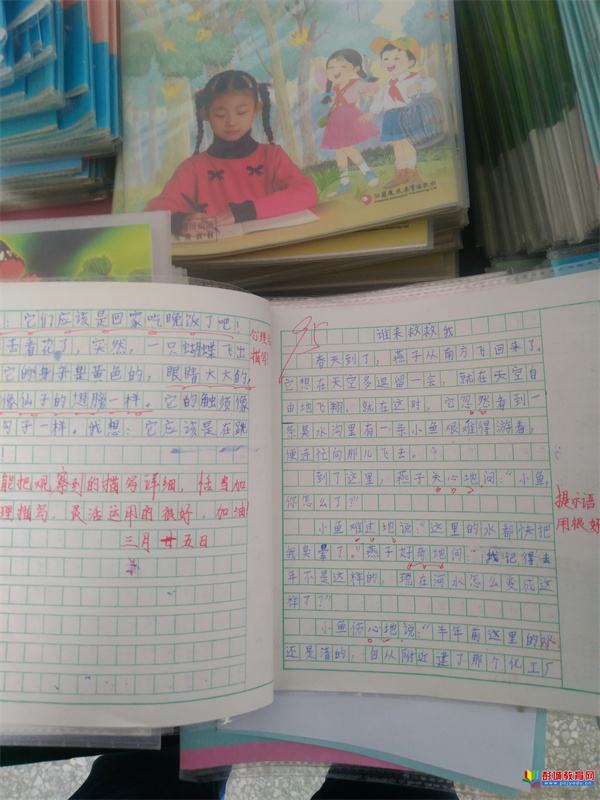 它们应该是回家吃晚饭了吧!
去看花了，突然，一只蝴蝶飞出
它的身子是黄色的，眼睛大大的，
像仙子的翅膀一样。它的触须像
子一样。我想：它应该是在跳
!
心理
描写!
能把观察到的描写详细，恰当加
理描写，灵活运用的很好，加油!
三月廿五日
95
谁来救救我
春天到了，燕子从南方飞回来了。
它想在天空多逗留一会，就在天空自
由地飞翔。就在这时，它忽然看到一
条臭水沟里有一条小鱼艰难得游着，
便连忙向那儿飞去。
到了这里，燕子关心地问：“小鱼，
你怎么了？”
小鱼难过地说：“这里的水都快把
我臭晕了。”燕子好奇地问：“我记得去
年不是这样的，现在河水怎么变成这
样了？”
小鱼伤心地说：“半年前这里的水
还是清的，自从附近建了那个化工厂
提示语
用很好
彭城教育网
www.pcjyedu.cn